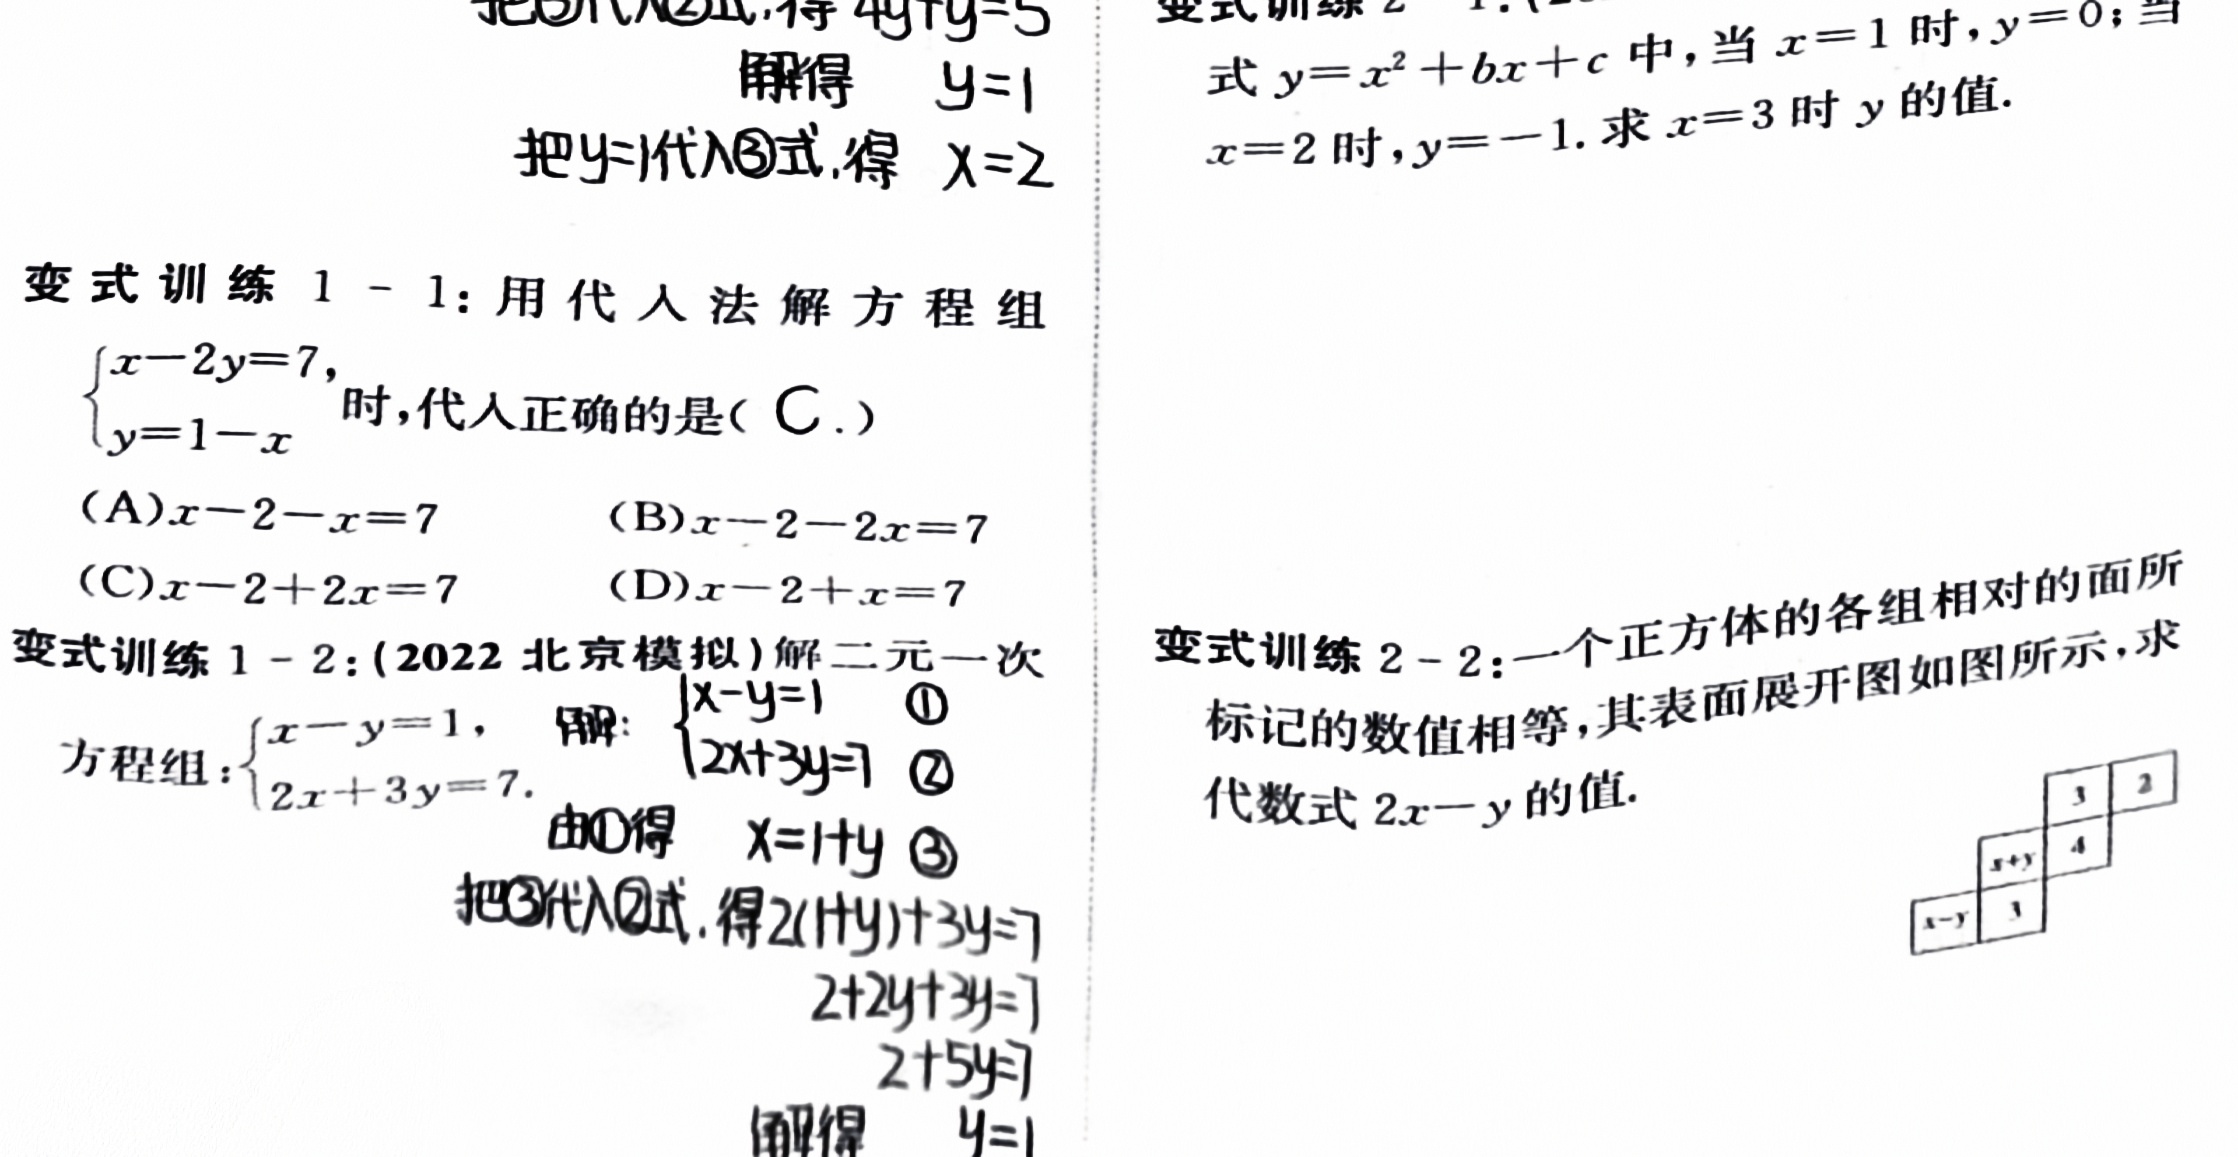 把③代入②式,得 4y+y=5
解得 y=1
把y=1代入③式,得 x=2
变式训练 1-1:用代入法解方程组
{x-2y=7,
y=1-x
时,代入正确的是( C.)
(A)x-2-x=7 (B)x-2-2x=7
(C)x-2+2x=7 (D)x-2+x=7
变式训练 1-2:(2022 北京模拟)解二元一次
方程组:{x-y=1,
2x+3y=7.
解: {x-y=1 ①
2x+3y=7 ②
由①得 x=1+y ③
把③代入②式,得2(1+y)+3y=7
2+2y+3y=7
2+5y=7
解得 y=1
变式训练 2-1:(
式 y=x²+bx+c 中,当 x=1 时,y=0;当
x=2 时,y=-1.求 x=3 时 y 的值.
变式训练 2-2:一个正方体的各组相对的面所
标记的数值相等,其表面展开图如图所示,求
代数式 2x-y 的值.
3 2
x+y 4
x-y 3